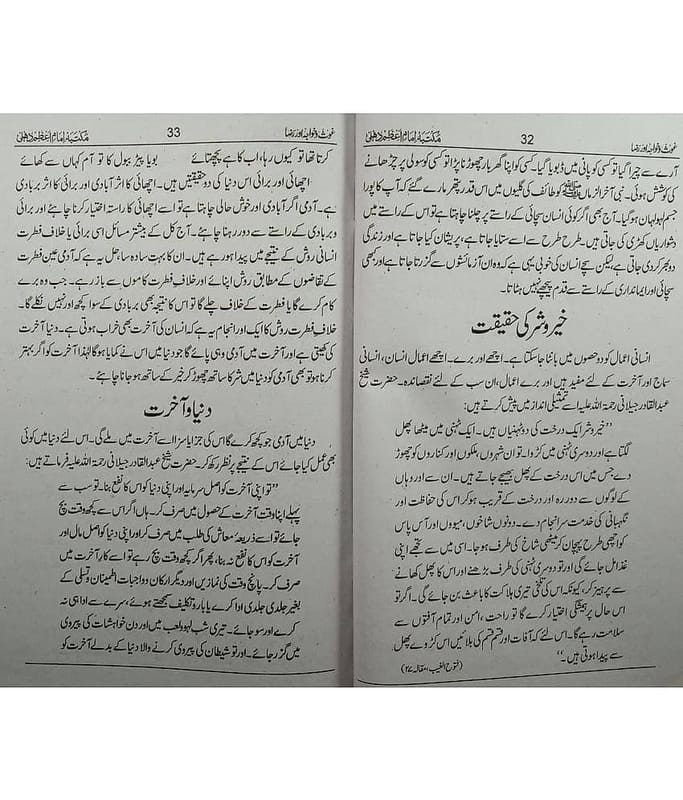 غوث و خواجہ اور رضا 32 مکتبہ امام اعظم دہلی
آرے سے چیرا گیا تو کسی کو پانی میں ڈبویا گیا۔ کسی کو اپنا گھر بار چھوڑنا پڑا تو کسی کو سولی پر چڑھانے
کی کوشش ہوئی۔ نبی آخر الزماں ﷺ کو طائف کی گلیوں میں اس قدر پتھر مارے گئے کہ آپ کا پورا
جسم لہولہان ہو گیا۔ آج بھی اگر کوئی انسان سچائی کے راستے پر چلنا چاہتا ہے تو اس کے راستے میں
دشواریاں کھڑی کی جاتی ہیں۔ طرح طرح سے اسے ستایا جاتا ہے، پریشان کیا جاتا ہے اور زندگی
دوبھر کر دی جاتی ہے، لیکن سچے انسان کی خوبی یہی ہے کہ وہ ان آزمائشوں سے گزر جاتا ہے اور کبھی
سچائی اور ایمانداری کے راستے سے قدم پیچھے نہیں ہٹاتا۔
خیر و شر کی حقیقت
انسانی اعمال کو دو حصوں میں بانٹا جا سکتا ہے۔ اچھے اور برے۔ اچھے اعمال انسان، انسانی
سماج اور آخرت کے لئے مفید ہیں اور برے اعمال، ان سب کے لئے نقصاندہ۔ حضرت شیخ
عبدالقادر جیلانی رحمۃ اللہ علیہ اسے تمثیلی انداز میں پیش کرتے ہیں:
”خیر و شر ایک درخت کی دو ٹہنیاں ہیں۔ ایک ٹہنی میں میٹھا پھل
لگتا ہے اور دوسری ٹہنی میں کڑوا۔ تو ان شہروں، ملکوں اور کناروں کو چھوڑ
دے جس میں اس درخت کے پھل بھیجے جاتے ہیں۔ ان سے اور وہاں
کے لوگوں سے دور رہ اور درخت کے قریب ہو کر اس کی حفاظت اور
نگہبانی کی خدمت سرانجام دے۔ دونوں شاخوں، میووں اور آس پاس
کو اچھی طرح پہچان کر میٹھی شاخ کی طرف ہو جا۔ اسی میں سے تجھے اپنی
غذا مل جائے گی اور تو دوسری ٹہنی کی طرف بڑھنے اور اس کا پھل کھانے
سے پرہیز کر، کیونکہ اس کی تلخی تیری ہلاکت کا باعث بن جائے گی۔ اگر تو
اس حال پر ہمیشگی اختیار کرے گا تو راحت، امن اور تمام آفتوں سے
سلامت رہے گا۔ اس لئے کہ آفات اور قسم قسم کی بلائیں اس کڑوے پھل
سے پیدا ہوتی ہیں۔“
(فتوح الغیب، مقالہ ۲۷)
غوث و خواجہ اور رضا 33 مکتبہ امام اعظم دہلی
کرتا تھا تو کیوں رہا، اب کا ہے پچھتائے بویا پیڑ ببول کا تو آم کہاں سے کھائے
اچھائی اور برائی اس دنیا کی دو حقیقتیں ہیں۔ اچھائی کا اثر آبادی اور برائی کا اثر بربادی
ہے۔ آدمی اگر آبادی اور خوش حالی چاہتا ہے تو اسے اچھائی کا راستہ اختیار کرنا چاہئے اور برائی
و بربادی کے راستے سے دور رہنا چاہئے۔ آج کل کے بیشتر مسائل اسی برائی یا خلاف فطرت
انسانی روش کے نتیجے میں پیدا ہو رہے ہیں۔ ان کا بہت سادہ سا حل یہ ہے کہ آدمی عین فطرت
کے تقاضوں کے مطابق روش اپنائے اور خلاف فطرت کاموں سے باز رہے۔ جب وہ برے
کام کرے گا یا فطرت کے خلاف چلے گا تو اس کا نتیجہ بھی بربادی کے سوا کچھ اور نہیں نکلے گا۔
خلاف فطرت روش کا ایک اور انجام یہ ہے کہ انسان کی آخرت بھی خراب ہوتی ہے۔ دنیا آخرت
کی کھیتی ہے اور آخرت میں آدمی وہی پائے گا جو دنیا میں اس نے کمایا ہوگا لہٰذا آخرت کو اگر بہتر
کرنا ہو تو بھی آدمی کو دنیا میں شر کا ساتھ چھوڑ کر خیر کے ساتھ ہو جانا چاہئے۔
دنیا و آخرت
دنیا میں آدمی جو کچھ کرے گا اس کی جزا یا سزا اسے آخرت میں ملے گی۔ اس لئے دنیا میں کوئی
بھی عمل کیا جائے اس کے نتیجے پر نظر رکھ کر۔ حضرت شیخ عبدالقادر جیلانی رحمۃ اللہ علیہ فرماتے ہیں:
”تو اپنی آخرت کو اصل سرمایہ اور اپنی دنیا کو اس کا نفع بنا۔ تو سب سے
پہلے اپنا وقت آخرت کے حصول میں صرف کر۔ ہاں اگر اس سے کچھ وقت بچ
جائے تو اسے ذریعۂ معاش کی طلب میں صرف کر اور اپنی دنیا کو اصل مال اور
آخرت کو اس کا نفع نہ بنا، پھر اگر کچھ وقت بچ رہے تو اسے کار آخرت میں
صرف کر۔ پانچ وقت کی نمازیں اور دیگر ارکان و واجبات اطمینان و تسلی کے
بغیر جلدی جلدی ادا کرے یا بار و تکلیف سمجھتے ہوئے، سرے سے ادا ہی نہ
کرے اور سو جائے۔ تیری شب لہو و لعب میں اور دن خواہشات کی پیروی
میں گزر جائے۔ اور تو شیطان کی پیروی کرنے والا دنیا کے بدلے آخرت کو